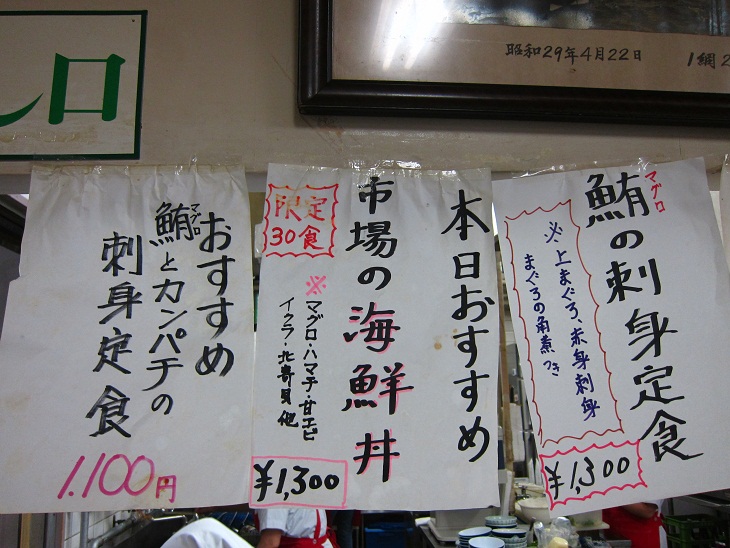 口
昭和29年4月22日 1網2
鮪の刺身定食
マグロ
※上まぐろ、赤身刺身
まぐろの角煮つき
¥1,300
本日おすすめ
市場の海鮮丼
限定
30食
※マグロ・ハマチ・甘エビ
イクラ・北寄貝 他
¥1,300
おすすめ
鮪とカンパチの
マグロ
刺身定食
1.100円